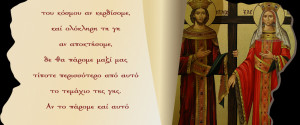 του κόσμου αν κερδίσομε,
καί ολόκληρη τη γη
αν αποκτέσομε,
δε θα πάρομε μαζί μας
τίποτε περισσότερο από αυτό
το τεμάχιο της γης.
Αν το πάρομε καί αυτό